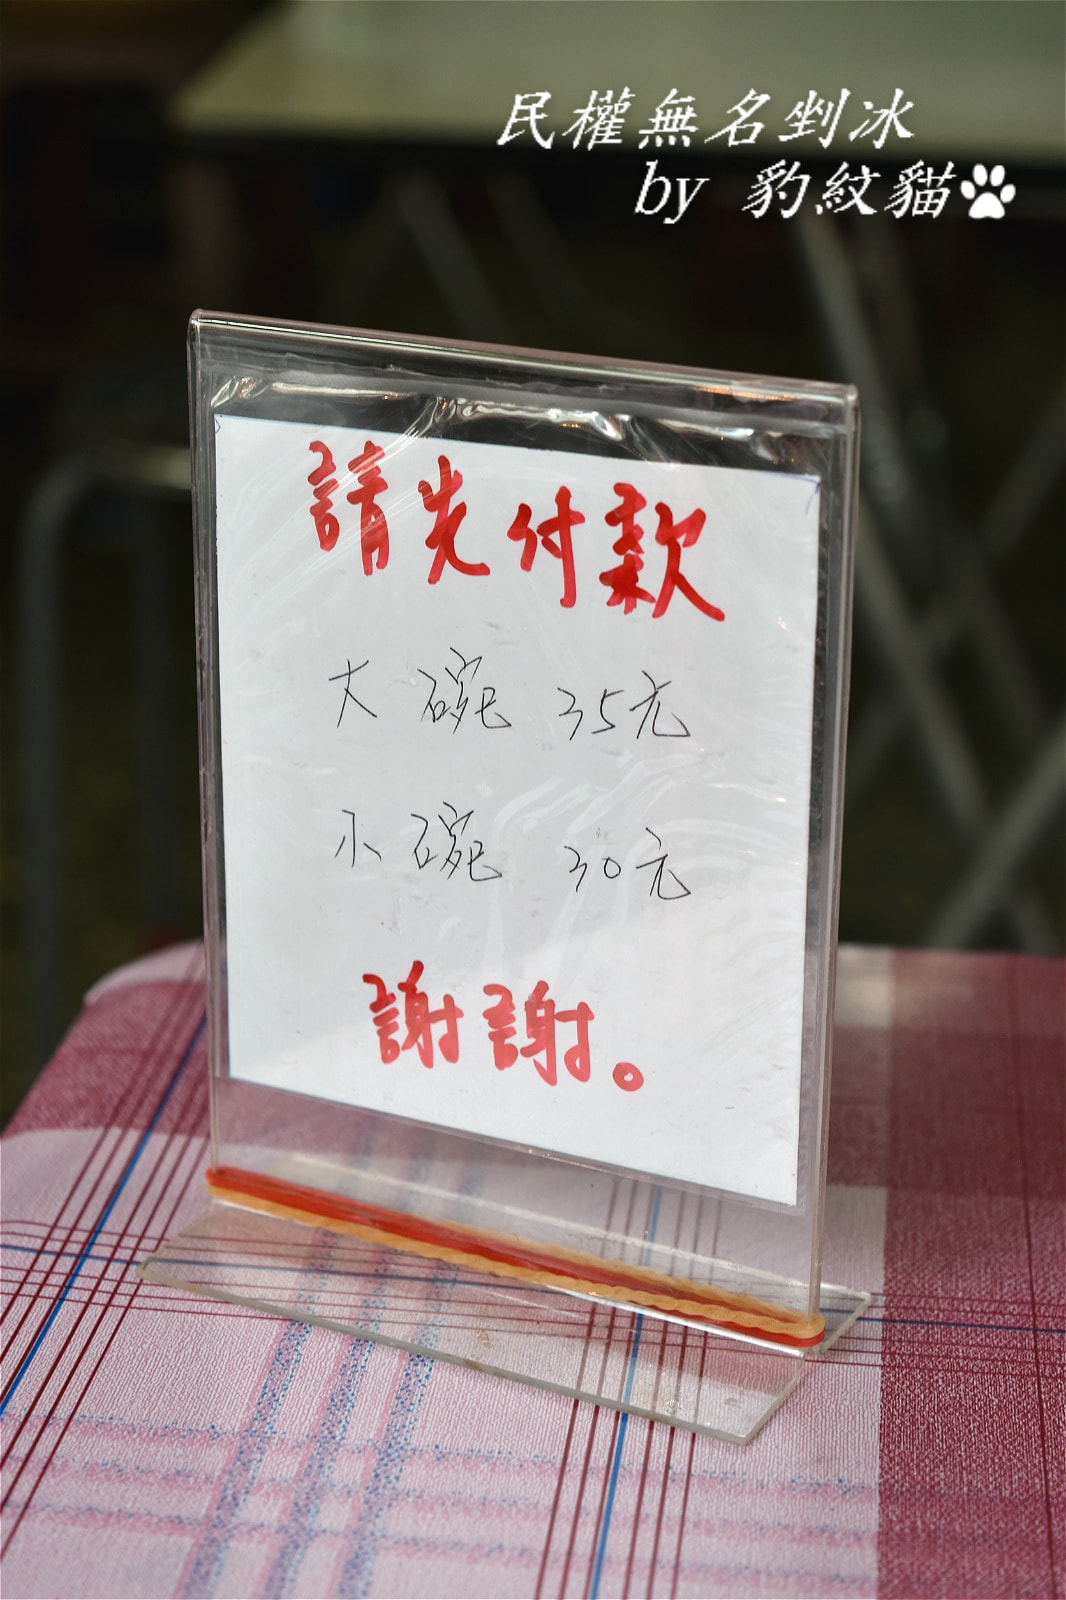 民權無名剉冰
by 豹紋貓
請先付款
大碗 35元
小碗 30元
謝謝。